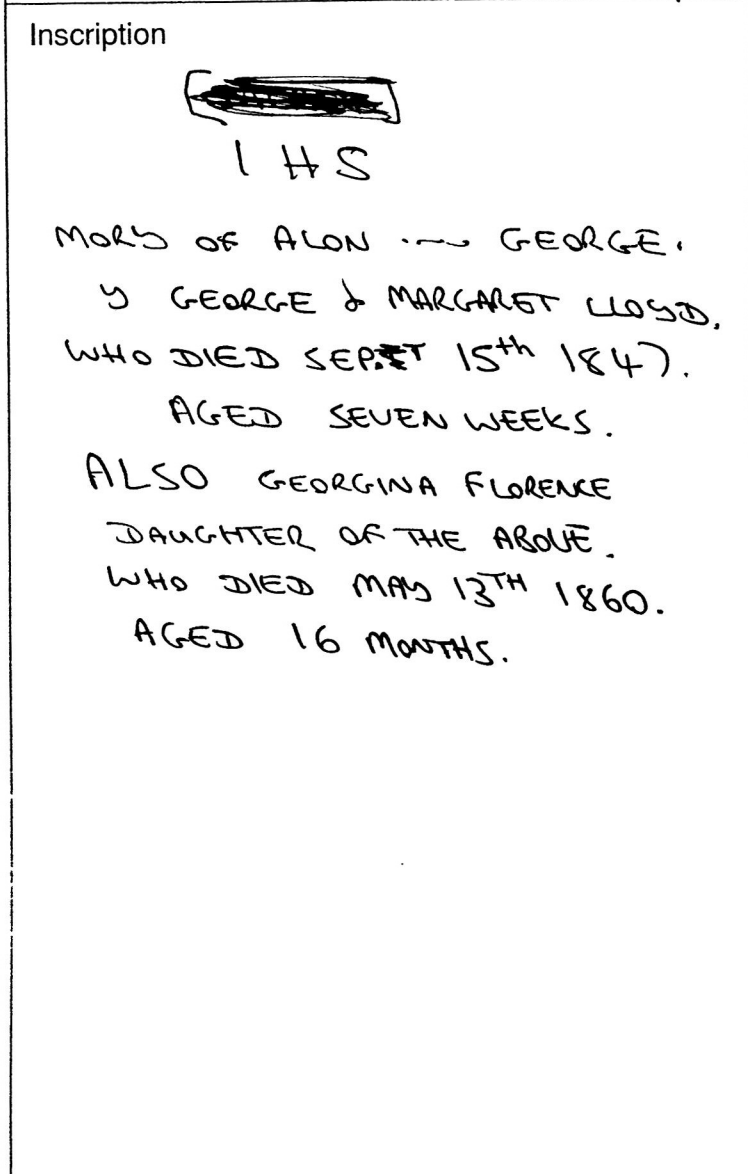 Inscription
IHS
MORY OF ALON ... GEORGE.
Y GEORGE & MARGARET LLOYD.
WHO DIED SEPT 15th 1847.
AGED SEVEN WEEKS.
ALSO GEORGINA FLORENCE
DAUGHTER OF THE ABOVE.
WHO DIED MAY 13TH 1860.
AGED 16 MONTHS.